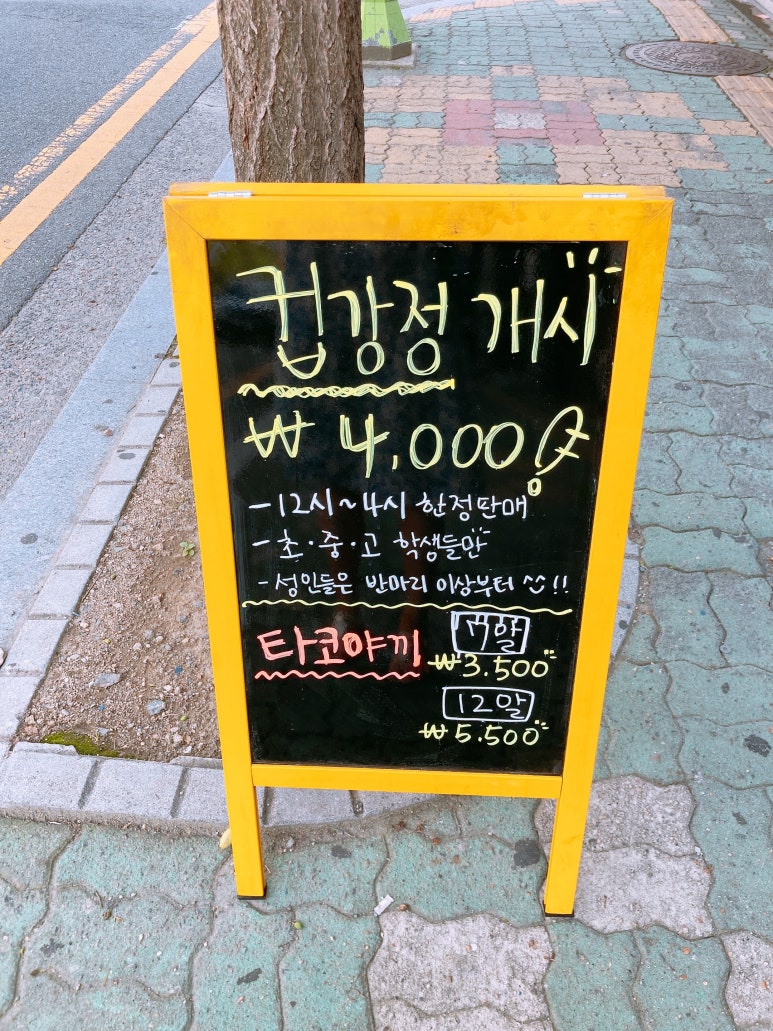 컵강정 개시
₩ 4,000
-12시~4시 한정판매
-초·중·고 학생들만
-성인들은 반마리 이상부터 !!
타코야끼
₩3.500
12알
₩5.500